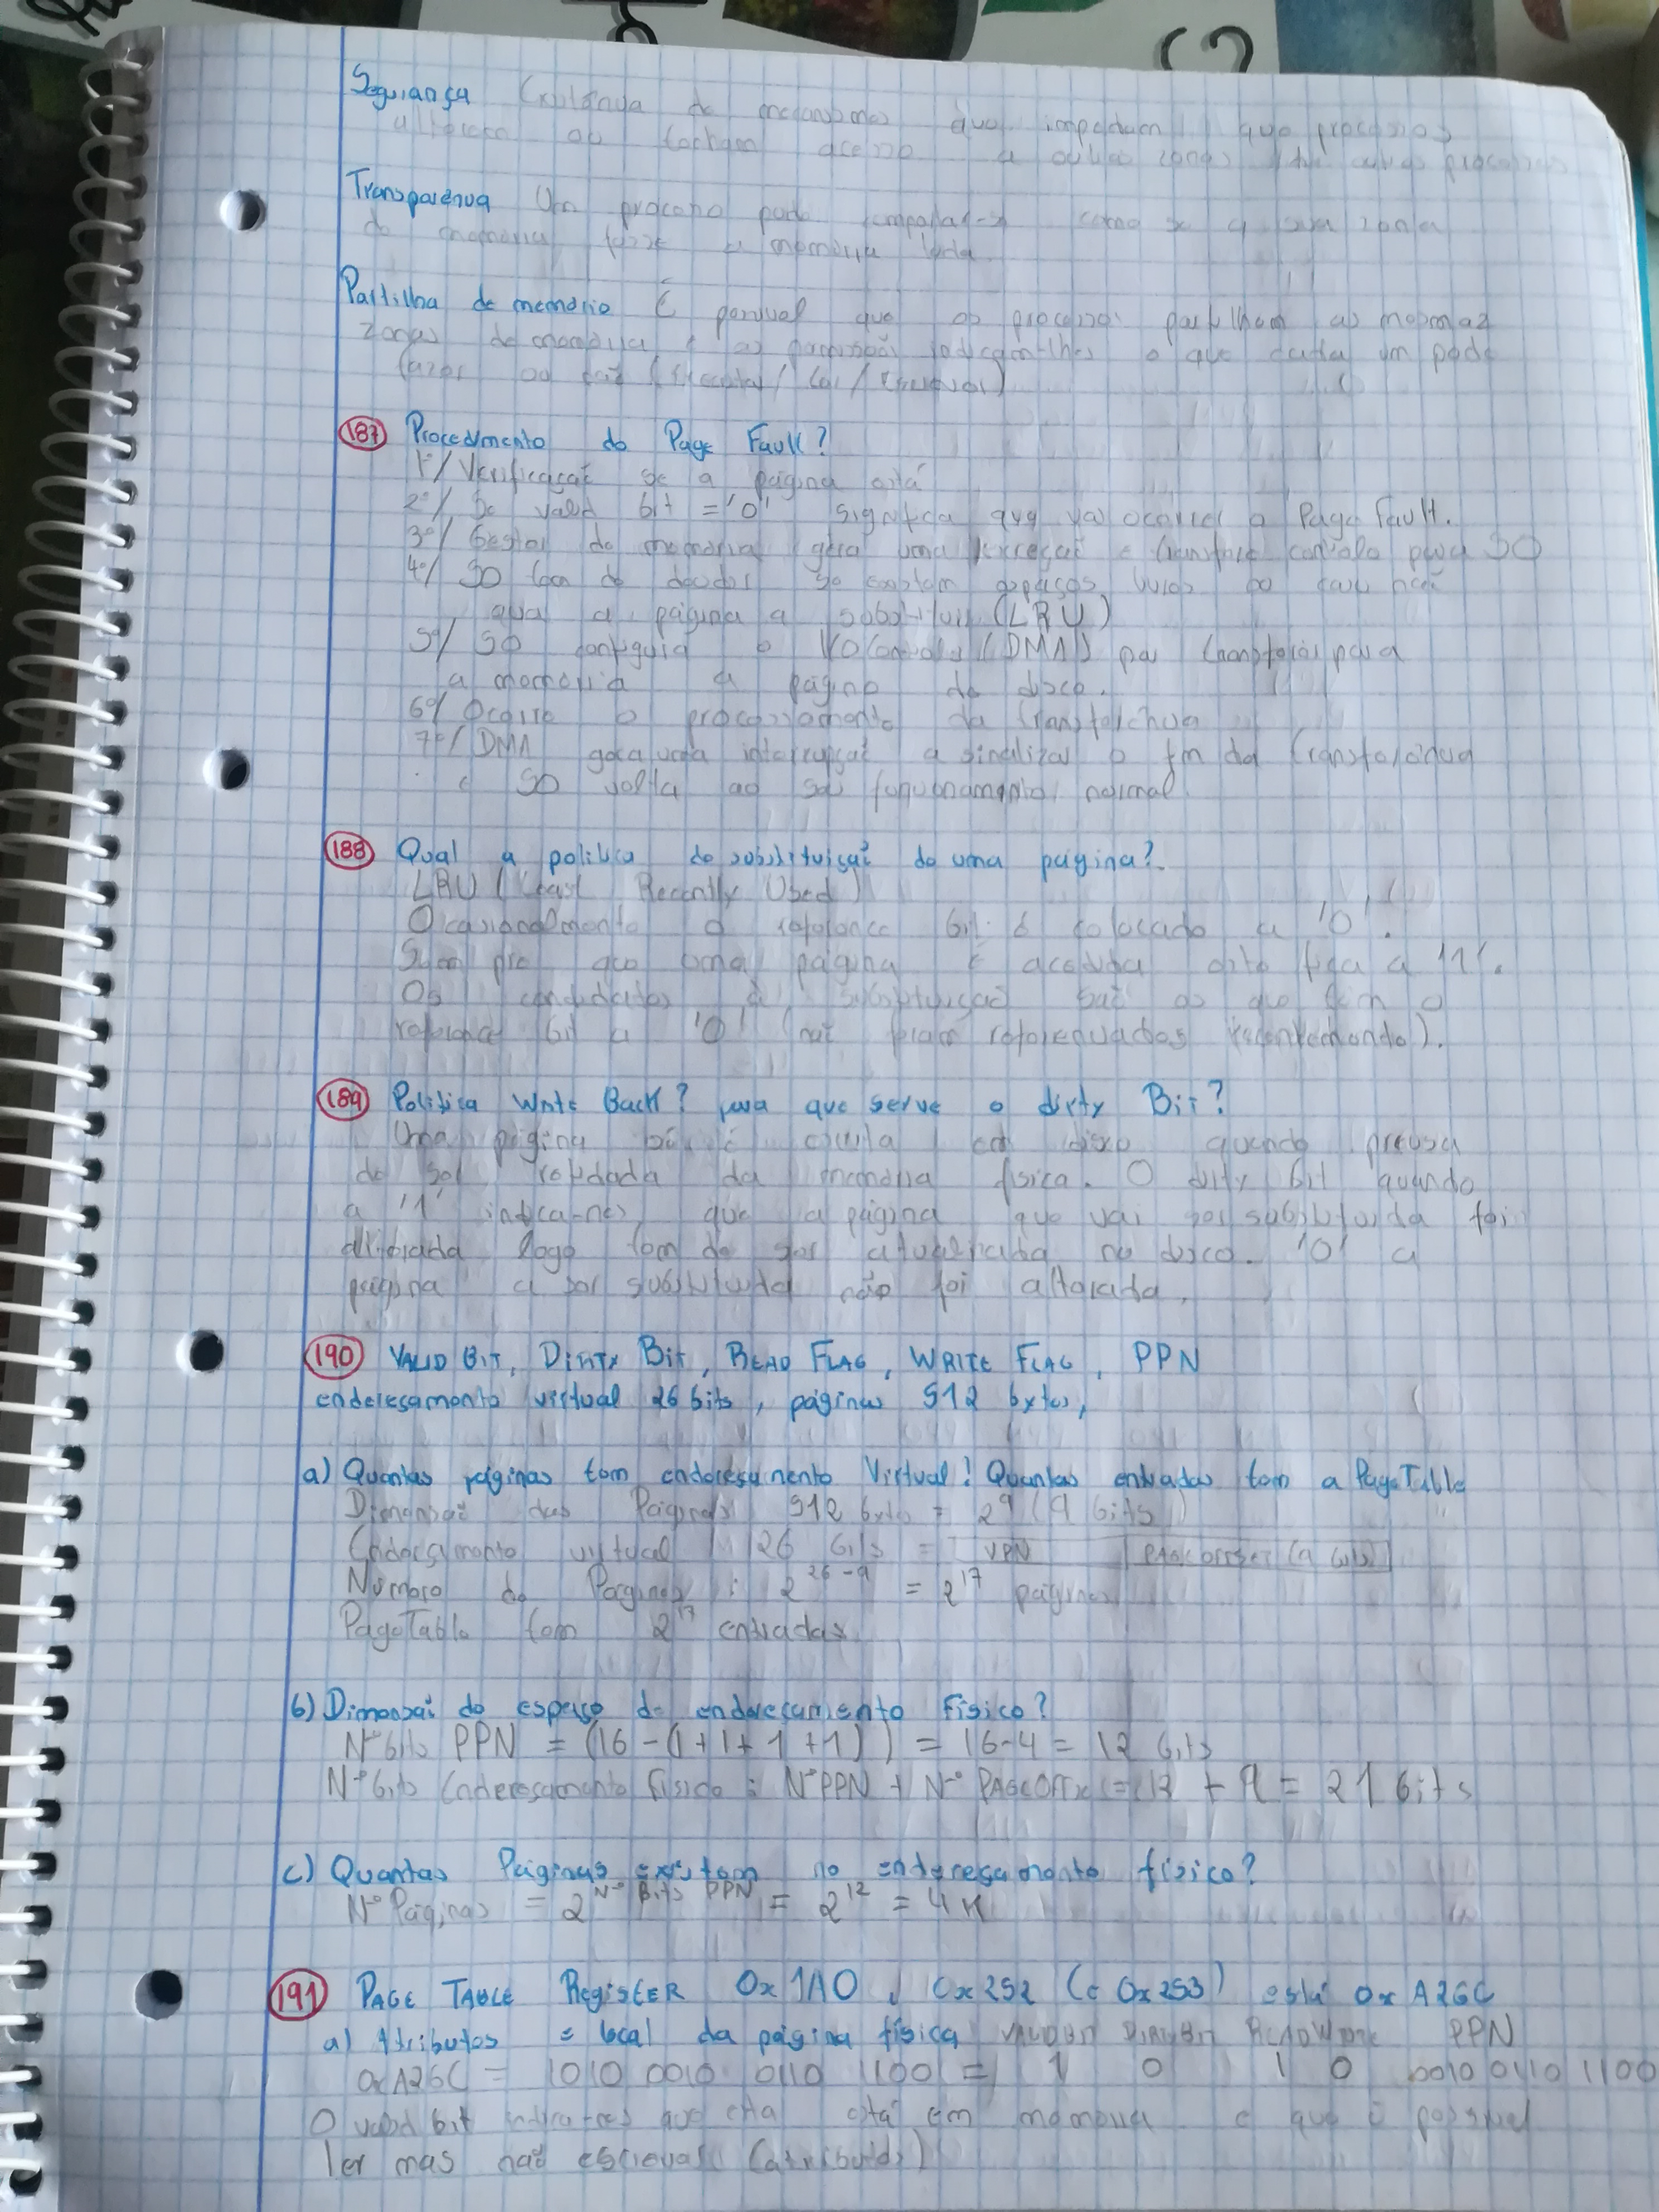 Segurança Existência de mecanismos que impedem que processos
alterem ou tenham acesso a outras zonas de outros processos
Transparência Um processo pode comportar-se como se a sua zona
de memória fosse a memória toda.
Partilha de memória É possível que os processos partilhem as mesmas
zonas de memória e as permissões indicam-lhes o que cada um pode
fazer ou não (Executar/ Ler / Escrever)
187 Procedimento do Page Fault?
1º/ Verificação se a página está
2º/ Se valid bit = '0' significa que vai ocorrer o Page Fault.
3º/ Gestor de memória gera uma exceção e transfere controlo para SO
4º/ SO tem de decidir se existem espaços livres ou caso não
qual a página a substituir (LRU)
5º/ SO configura o I/O Controler (DMA) par transferir para
a memória a página do disco.
6º/ Ocorre o processamento da transferência
7º/ DMA gera uma interrupção a sinalizar o fim da transferência
e SO volta ao seu funcionamento normal.
188 Qual a politica de substituição de uma página?
LRU (Least Recently Used)
Ocasionalmente o reference bit é colocado a '0'.
Sempre que uma página é acedida este fica a '1'.
Os candidatos à substituição são os que têm o
reference bit a '0' (não foram referenciados recentemente).
189 Politica Write Back? para que serve o dirty Bit?
Uma página só é escrita em disco quando precisa
de ser retirada da memória física. O dirty bit quando
a '1' indica-nos que a página que vai ser substituida foi
alterada logo tem de ser atualizada no disco. '0' a
página a ser substituida não foi alterada.
190 VALID BIT, DIRTY BIT, READ FLAG, WRITE FLAG, PPN
endereçamento virtual 26 bits, páginas 512 bytes,
a) Quantas páginas tem endereçamento Virtual? Quantas entradas tem a PageTable
Dimensão das Páginas 512 bytes = 2^9 (9 bits)
Endereçamento virtual 26 bits = VPN PAGEOFFSET (9 bits)
Número de Páginas : 2^26-9 = 2^17 páginas
PageTable tem 2^17 entradas
b) Dimensão do espaço de endereçamento Físico?
Nº bits PPN = (16 - (1+1+1+1)) = 16-4 = 12 bits
Nº bits Endereçamento Físico : Nº PPN + Nº PAGEOFFSET = 12 + 9 = 21 bits
c) Quantas Páginas existem no endereçamento físico?
Nº Páginas = 2^Nº Bits PPN = 2^12 = 4K
191 PAGE TABLE REGISTER 0x1A0, 0x252 (e 0x253) está 0xA26C
a) Atributos e local da página física VALIDBIT DIRTYBIT READ WRITE PPN
0xA26C = 1010 0010 0110 1100 = 1 0 1 0 0010 0110 1100
O valid bit indica-nos que esta está em memória e que é possível
ler mas não escrever (atributos)